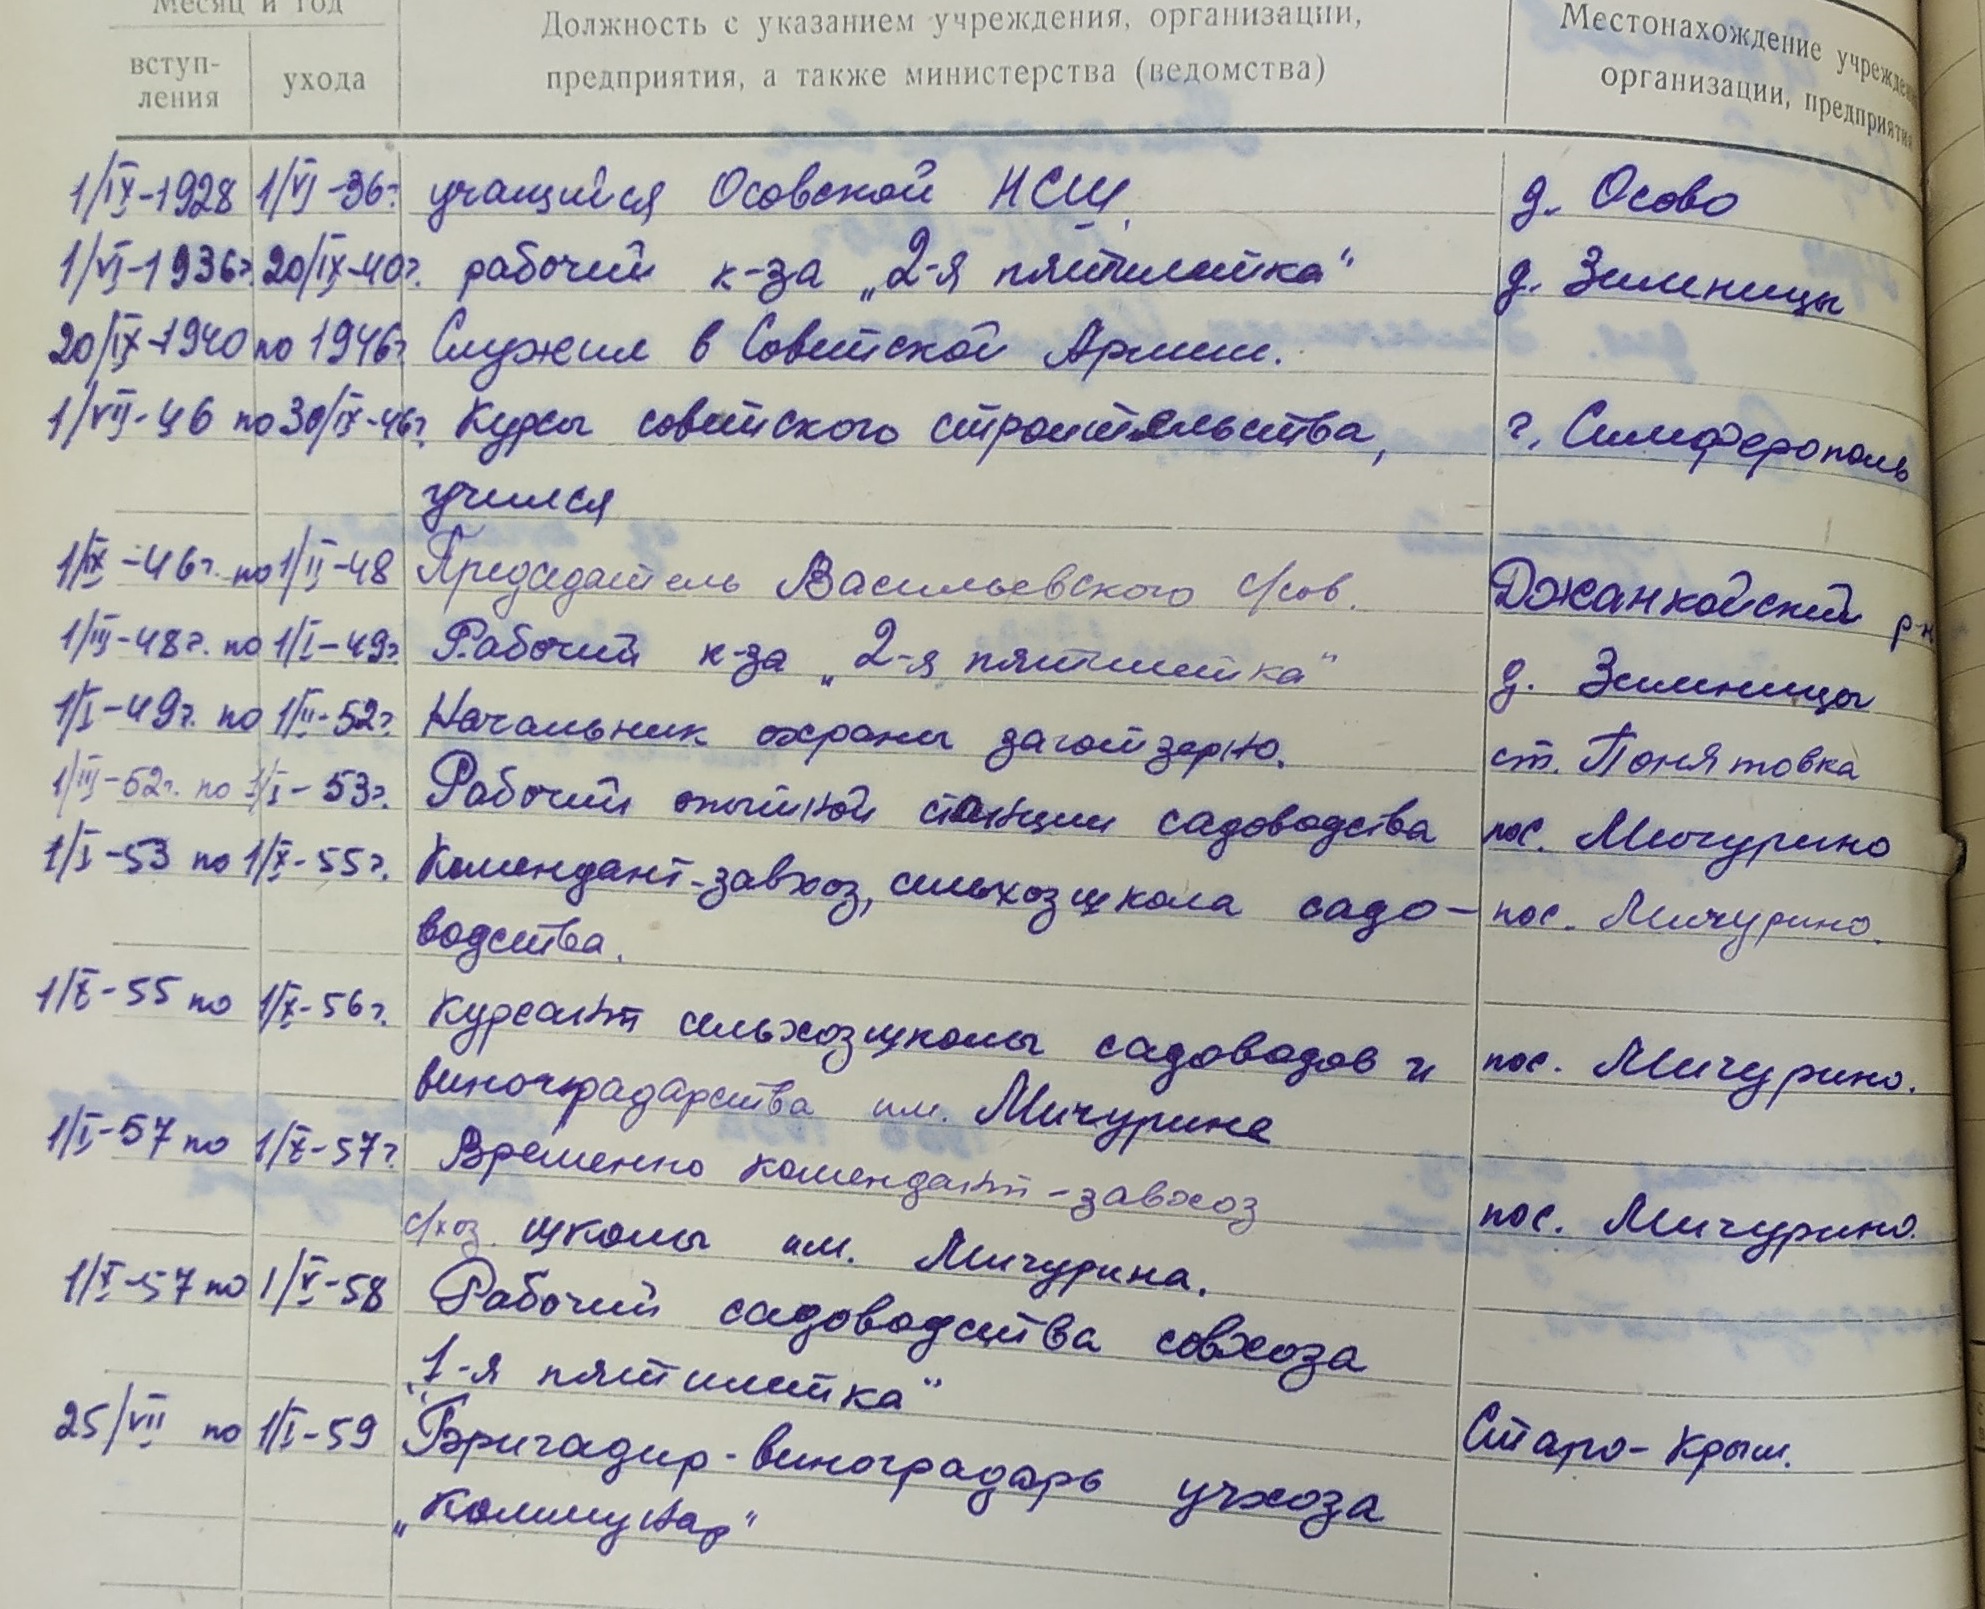 Месяц и год
Должность с указанием учреждения, организации,
предприятия, а также министерства (ведомства)
Местонахождение учрежден
организации, предприятия
вступ-
ления
ухода
1/IX-1928 1/VI-36г. учащийся Осовской НСШ. д. Осово
1/VI-1936г. 20/IX-40г. рабочий к-за „2-я пятилетка" д. Зимницы
20/IX-1940 по 1946г. Служил в Советской Армии.
1/VII-46 по 30/IX-46г. Курсы советского строительства, г. Симферополь
учился
1/IX-46г. по 1/II-48 Председатель Васильевского с/сов. Джанкойский р-н
1/III-48г. по 1/I-49г. Рабочий к-за „2-я пятилетка" д. Зимницы
1/I-49г. по 1/II-52г. Начальник охраны заготзерно. ст. Понятовка
1/III-52г. по 1/I-53г. Рабочий опытной станции садоводства пос. Мичурино
1/I-53 по 1/X-55г. Комендант-завхоз, сельхозшкола садо- пос. Мичурино.
водства.
1/X-55 по 1/X-56г. Курсант сельхозшколы садоводов и пос. Мичурино.
виноградарства им. Мичурина
1/I-57 по 1/X-57г. Временно комендант-завхоз
с/хоз. школы им. Мичурина. пос. Мичурино.
1/X-57 по 1/V-58 Рабочий садоводства совхоза
„1-я пятилетка"
25/VII по 1/I-59 Бригадир-виноградарь учхоза Старо-Крым.
„Коммунар"